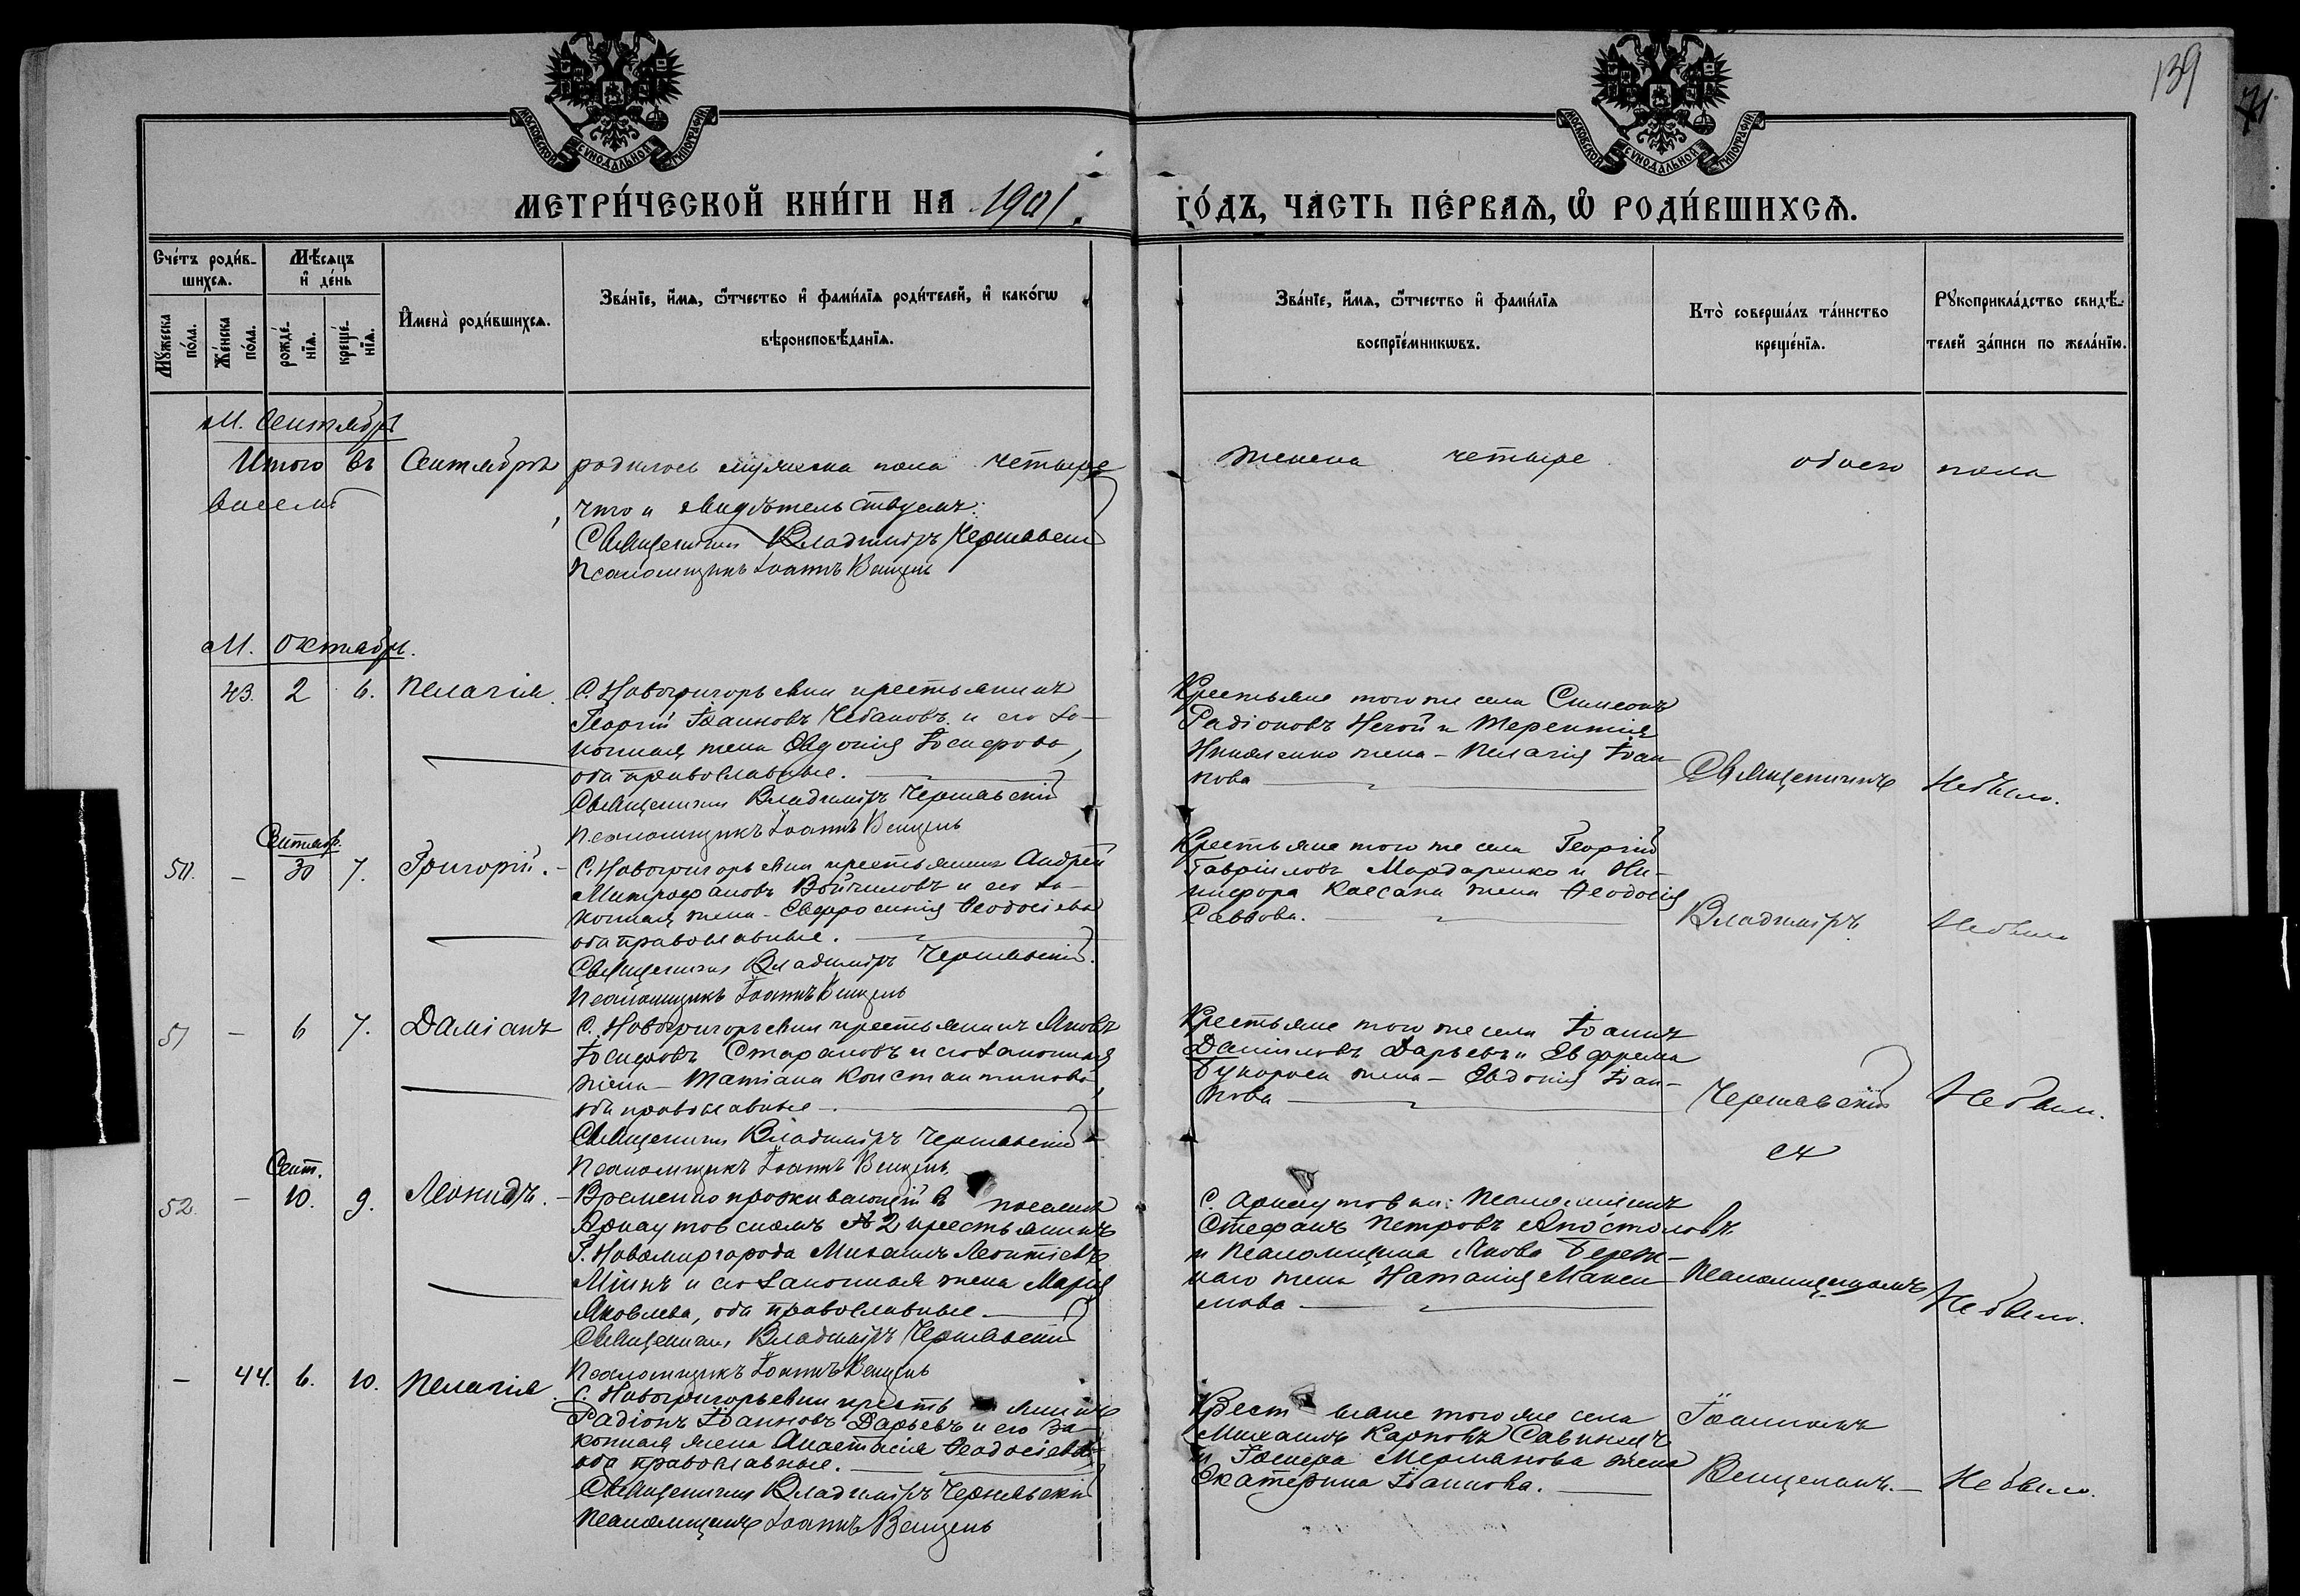 139
71
МОСКОВСКОЙ СѴНОДАЛЬНОЙ ТИПОГРАФІИ
МОСКОВСКОЙ СѴНОДАЛЬНОЙ ТИПОГРАФІИ
МЕТРИ́ЧЕСКОЙ КНИ́ГИ НА 1901.
ГО́ДЪ, ЧАСТЬ ПЕ́РВАѦ, Ѡ РОДИ́ВШИХСѦ.
Сче́тъ роди́в-
шихсѧ.
Мꙋ́жеска
по́ла.
Же́нска
по́ла.
Мѣ́сѧцъ
и҆ де́нь
рожде́-
нїѧ.
креще́-
нїѧ.
И҆мена̀ роди́вшихсѧ.
Зва́нїе, и҆́мѧ, ѻ҆́тчество и҆ фами́лїѧ роди́телей, и҆ како́гѡ
вѣроисповѣ́данїѧ.
Зва́нїе, и҆́мѧ, ѻ҆́тчество и҆ фами́лїѧ
воспрїе́мникѡвъ.
Кто̀ соверша́лъ та́инство
креще́нїѧ.
Рꙋкоприкла́дство свидѣ́-
телей за́писи по жела́нїю.
М. Сентябрь
Итого въ Сентябрѣ родилось мужеска пола четыре
женска четыре обоего пола
восемь
что и свидѣтельствуемъ:
Священникъ Владиміръ Чернявскій
Псаломщикъ Іоаннъ Венцель
М. Октябрь.
43. 2 6. Пелагія
С. Новогригорьевки крестьянинъ
Георгій Іоанновъ Чебановъ и его за-
конная жена Евдокія Іосифова,
оба православные.
Священникъ Владиміръ Чернявскій
Псаломщикъ Іоаннъ Венцель
Крестьяне того же села Симеонъ
Радіоновъ Нечой и Терентія
жена - Пелагія Іоан-
нова
Священникъ
Не было.
Сентяб.
50. - 30 7. Григорій. -
С. Новогригорьевки крестьянинъ Андрей
Митрофановъ Войчиловъ и его за-
конная жена - Евфросинія Ѳеодосіева
оба православные.
Священникъ Владиміръ Чернявскій.
Псаломщикъ Іоаннъ Венцель
Крестьяне того же села Георгій
Гавріиловъ Мордаренко и Ни-
кифора жена Ѳеодосія
Саввова.
Владиміръ
Не было
51 - 6 7. Даміанъ
С. Новогригорьевки крестьянинъ Яковъ
Іосифовъ Старановъ и его законная
жена - Татіана Константинова,
оба православные
Священникъ Владиміръ Чернявскій
Псаломщикъ Іоаннъ Венцель
Крестьяне того же села Іоаннъ
Даніиловъ Дарьевъ и Ефрема
жена - Евдокія Іоан-
нова
Чернявскій
съ
Не было.
Сент.
52. - 10. 9. Леонидъ. -
Временно проживающій въ поселкѣ
Арнаутовскомъ № 2 крестьянинъ
Г. Новомиргорода Михаилъ Леонтіевъ
и его законная жена Марія
Яковлева, оба православные
Священникъ Владиміръ Чернявскій
Псаломщикъ Іоаннъ Венцель
С. Арнаутовки: Псаломщикъ
Стефанъ Петровъ Апостоловъ
и псаломщика Якова Береж-
наго жена Наталія Макси-
мова
Псаломщикомъ
Не было.
- 44. 6. 10. Пелагія
С. Новогригорьевки крестьянинъ
Радіонъ Іоанновъ Дарьевъ и его за-
конная жена Анастасія Ѳеодосіева
оба православные.
Священникъ Владиміръ Чернявскій
Псаломщикъ Іоаннъ Венцель
Крестьяне того же села
Михаилъ Карповъ
и Іосифа жена
Екатерина Іоаннова.
Іоанномъ
Венцелемъ.
Не было.